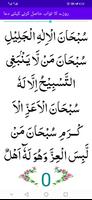 روزے کا ثواب حاصل کرنے کیلئے دعا
سُبْحَانَ الْاِلٰهِ الْجَلِيْلِ
سُبْحَانَ مَنْ لَّا يَنْۢبَغِى
التَّسْبِيْحُ اِلَّا لَهٗ
سُبْحَانَ الْاَعَزِّ الْاَ
كْرَمِ سُبْحَانَ مَنْ
لَّبِسَ الْعِزَّ وَهُوَ لَهٗ اَهْلٌ
0